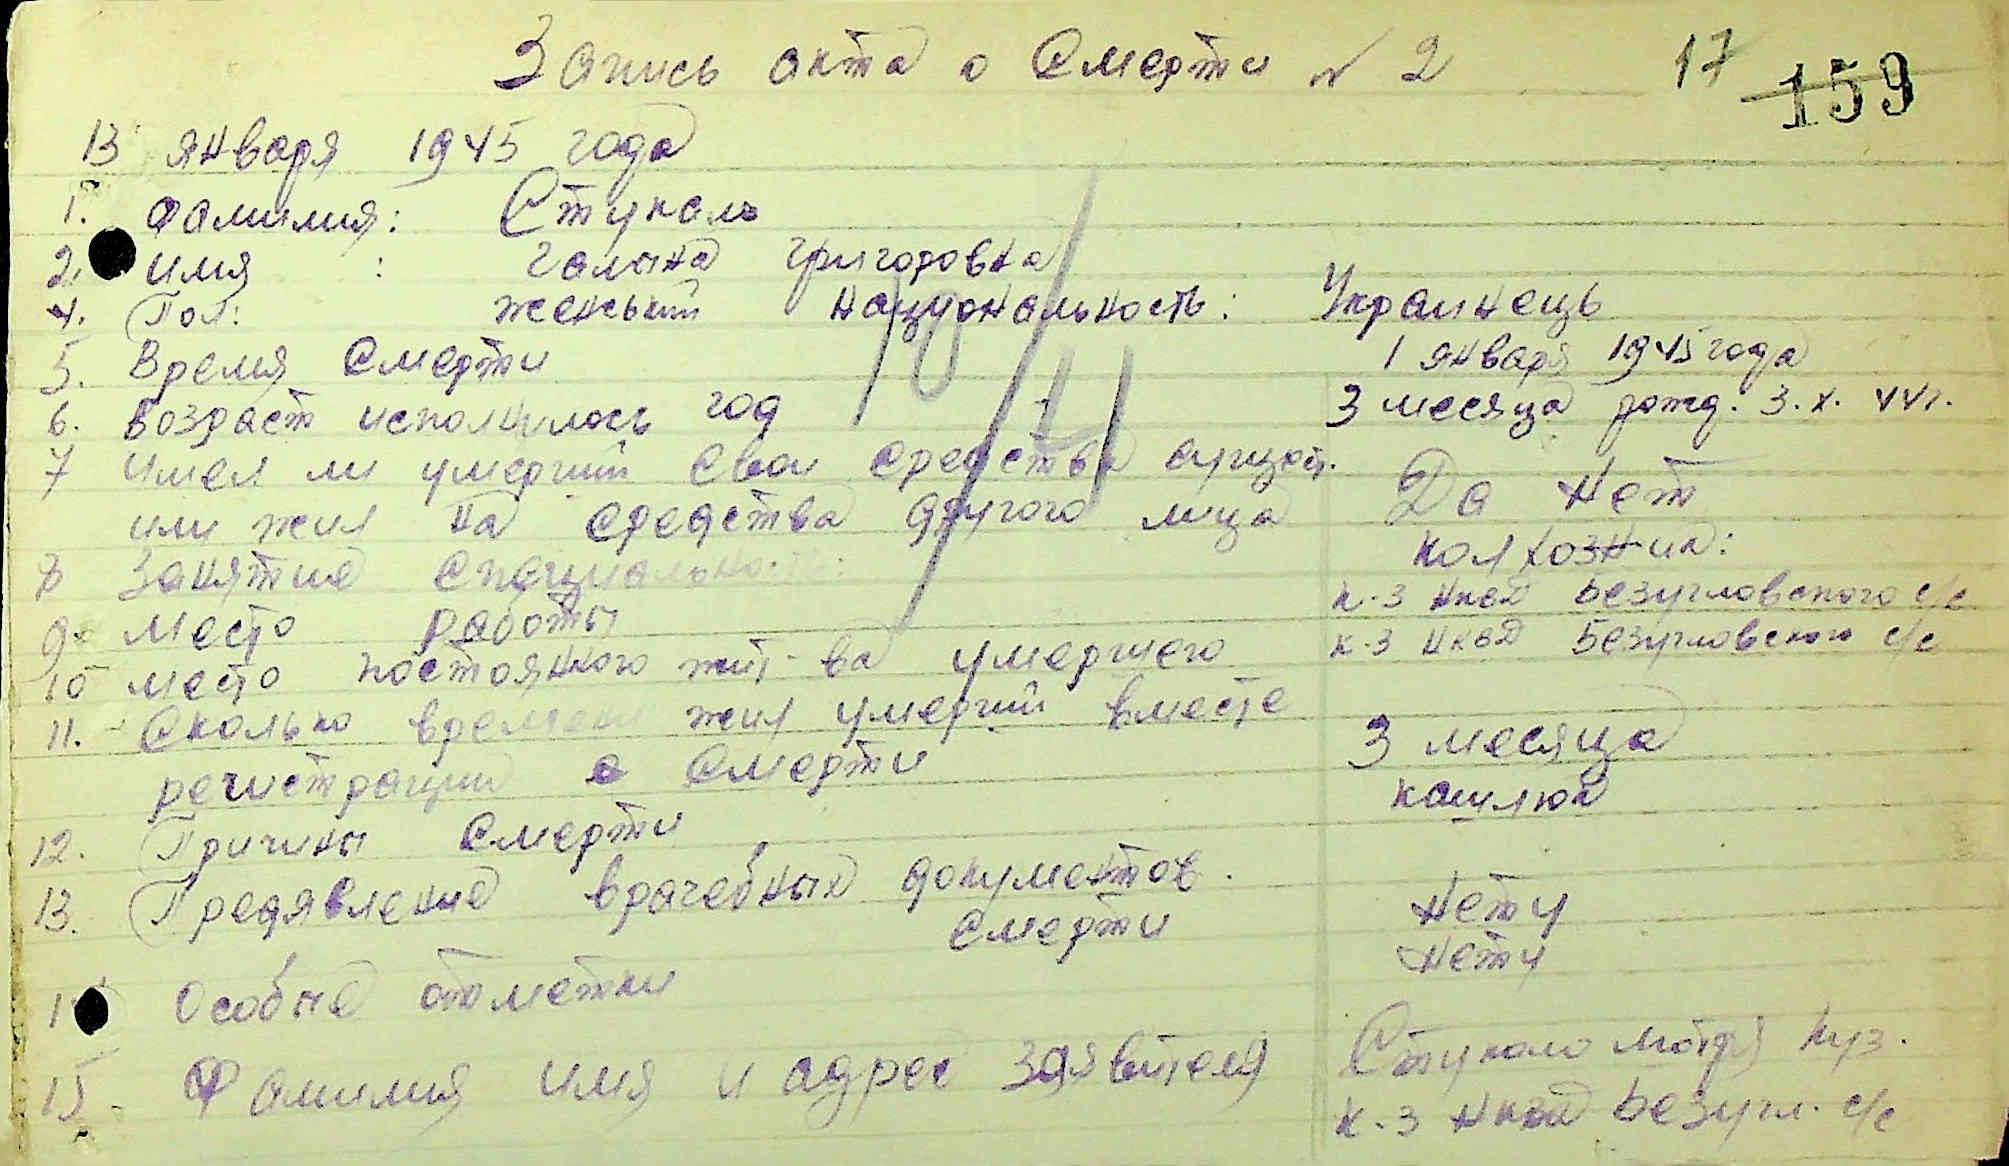 Запись акта о Смерти № 2 17 159
13 января 1945 года
1. Фамилия: Ступало
2. имя : Галына Григоровна
4. Пол: женський национальность: Украинець
5. Время Смерти 1 января 1945 года
6. Возраст исполнилось год 3 месяца рожд. 3.X. 44г.
7 имел ли умерший свои средства сущест.
или жил на средства другого лица Да Нет
8 Занятие специальность: колхозник:
9. Место работы к-з Нквд Безугловского с/с
10 место постоянного жит-ва умершего к-з Нквд Безугловского с/с
11. Сколько времени жил умерший вместе
регистрации с Смерти 3 месяца
12. Причины Смерти кашлюк
13. Предявление врачебных документов.
Смерти Нету
14 Особые отметки Нету
15. Фамилия имя и адрес заявителя Ступало Мотря Куз.
к-з Нквд Безугл. с/с